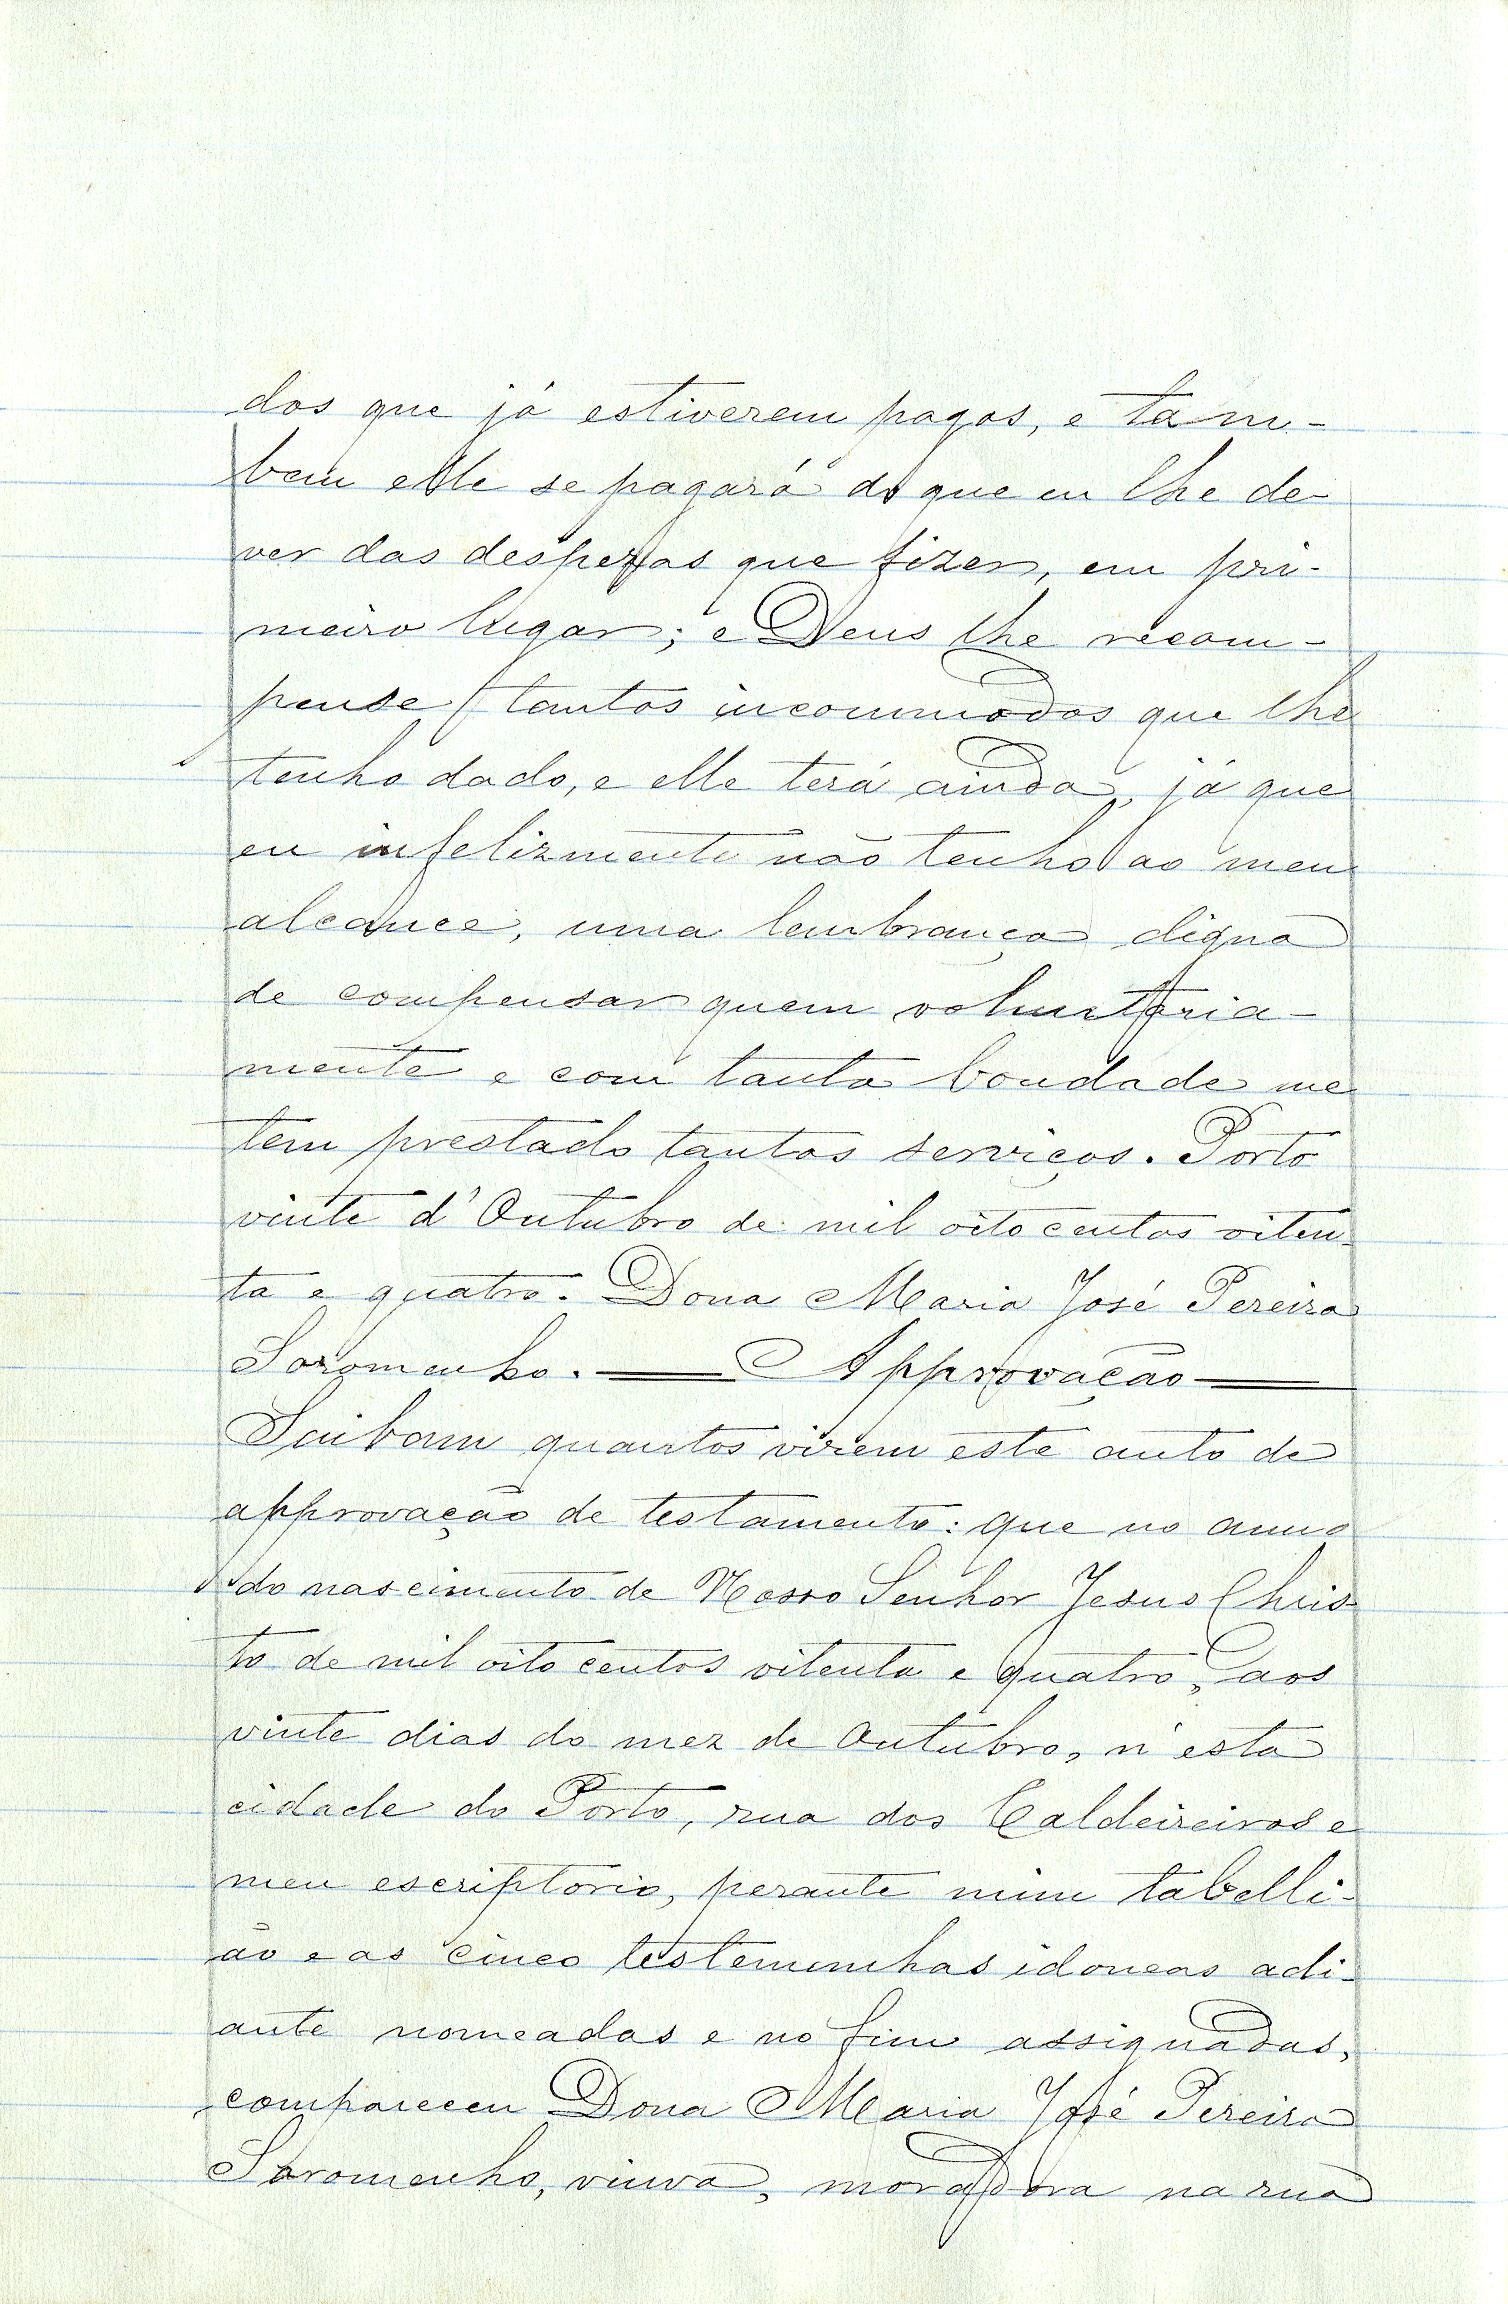 dos que já estiverem pagos, e tam-
bem elle se pagará do que eu lhe de-
ver das despezas que fizer, em pri-
meiro lugar; e Deus lhe recom-
pense tantos incommodos que lhe
tenho dado, e elle terá ainda, já que
eu infelizmente não tenho ao meu
alcance, uma lembrança digna
de compensar quem voluntaria-
mente e com tanta bondade me
tem prestado tantos serviços. Porto
vinte d'Outubro de mil oito centos oiten-
ta e quatro. Dona Maria José Pereira
Soromenho. — Approvação —
Saibam quantos virem este auto de
approvação de testamento: que no anno
do nascimento de Nosso Senhor Jesus Chris-
to de mil oito centos oitenta e quatro, aos
vinte dias do mez de Outubro, n'esta
cidade do Porto, rua dos Caldeireiros e
meu escriptorio, perante mim tabelli-
ão e as cinco testemunhas idoneas adi-
ante nomeadas e no fim assignadas,
compareceu Dona Maria José Pereira
Soromenho, viuva, moradora na rua